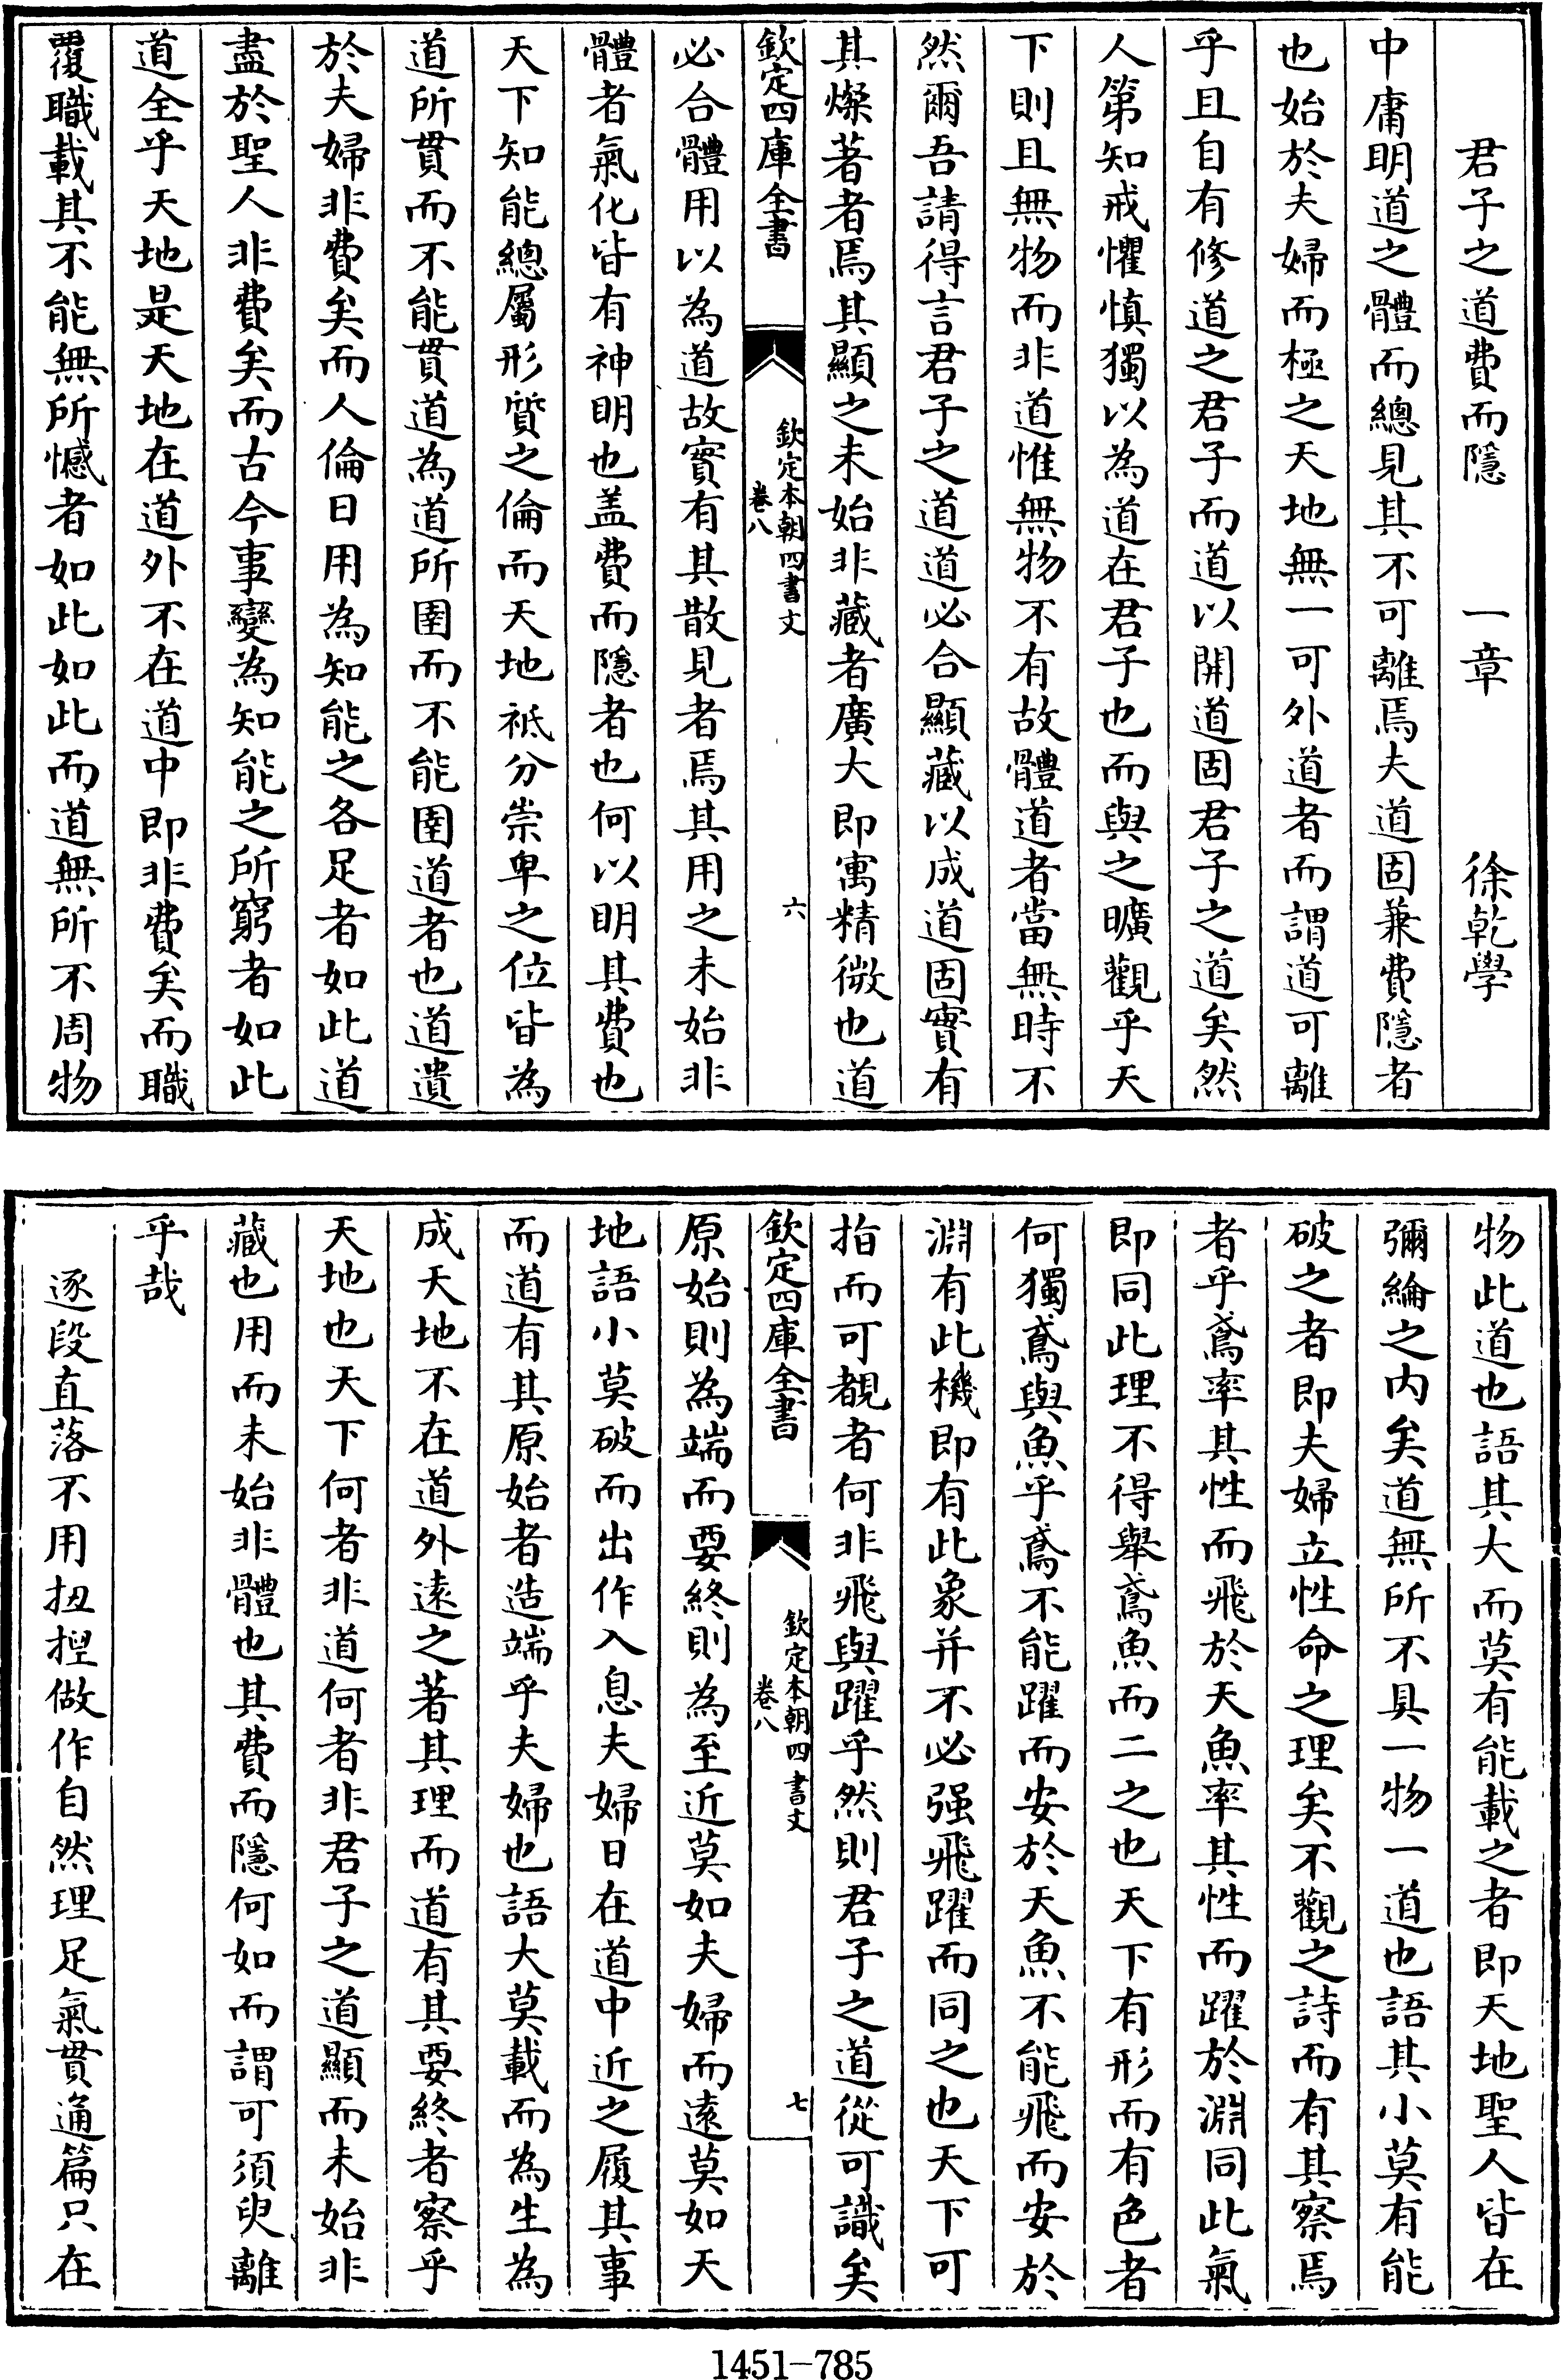 君子之道費而隱　一章　徐乾學
中庸明道之體而總見其不可離焉夫道固兼費隱者
也始於夫婦而極之天地無一可外道者而謂道可離
乎且自有修道之君子而道以開道固君子之道矣然
人第知戒懼慎獨以為道在君子也而與之曠觀乎天
下則且無物而非道惟無物不有故體道者當無時不
然爾吾請得言君子之道道必合顯藏以成道固實有
其燦著者焉其顯之未始非藏者廣大即寓精微也道
欽定四庫全書
欽定本朝四書文
卷八
六
必合體用以為道故實有其散見者焉其用之未始非
體者氣化皆有神明也盖費而隱者也何以明其費也
天下知能總屬形質之倫而天地祗分崇卑之位皆為
道所貫而不能貫道為道所圉而不能圉道者也道遺
於夫婦非費矣而人倫日用為知能之各足者如此道
盡於聖人非費矣而古今事變為知能之所窮者如此
道全乎天地是天地在道外不在道中即非費矣而職
覆職載其不能無所憾者如此如此而道無所不周物
物此道也語其大而莫有能載之者即天地聖人皆在
彌綸之內矣道無所不具一物一道也語其小莫有能
破之者即夫婦立性命之理矣不觀之詩而有其察焉
者乎鳶率其性而飛於天魚率其性而躍於淵同此氣
即同此理不得舉鳶魚而二之也天下有形而有色者
何獨鳶與魚乎鳶不能躍而安於天魚不能飛而安於
淵有此機即有此象并不必强飛躍而同之也天下可
指而可覩者何非飛與躍乎然則君子之道從可識矣
欽定四庫全書
欽定本朝四書文
卷八
七
原始則為端而要終則為至近莫如夫婦而遠莫如天
地語小莫破而出作入息夫婦日在道中近之履其事
而道有其原始者造端乎夫婦也語大莫載而為生為
成天地不在道外遠之著其理而道有其要終者察乎
天地也天下何者非道何者非君子之道顯而未始非
藏也用而未始非體也其費而隱何如而謂可須臾離
乎哉
逐段直落不用扭捏做作自然理足氣貫通篇只在
1451-785